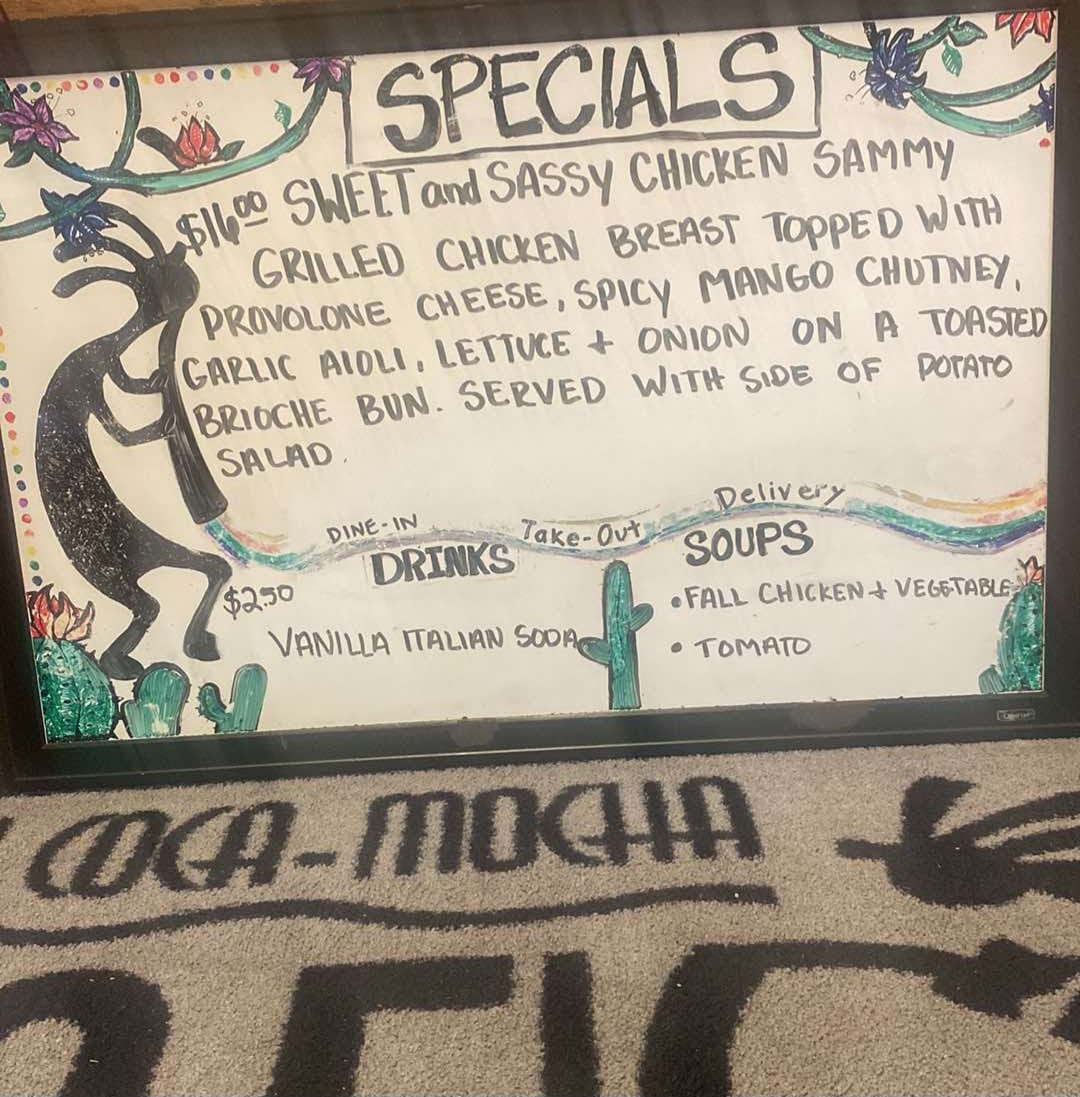 SPECIALS
$16.00 SWEET and SASSY CHICKEN SAMMY
GRILLED CHICKEN BREAST TOPPED WITH
PROVOLONE CHEESE, SPICY MANGO CHUTNEY,
GARLIC AIOLI, LETTUCE + ONION ON A TOASTED
BRIOCHE BUN. SERVED WITH SIDE OF POTATO
SALAD.
DINE-IN Take-Out Delivery
DRINKS
$2.50
VANILLA ITALIAN SODA
SOUPS
• FALL CHICKEN + VEGETABLE
• TOMATO
COCA-MOCHA